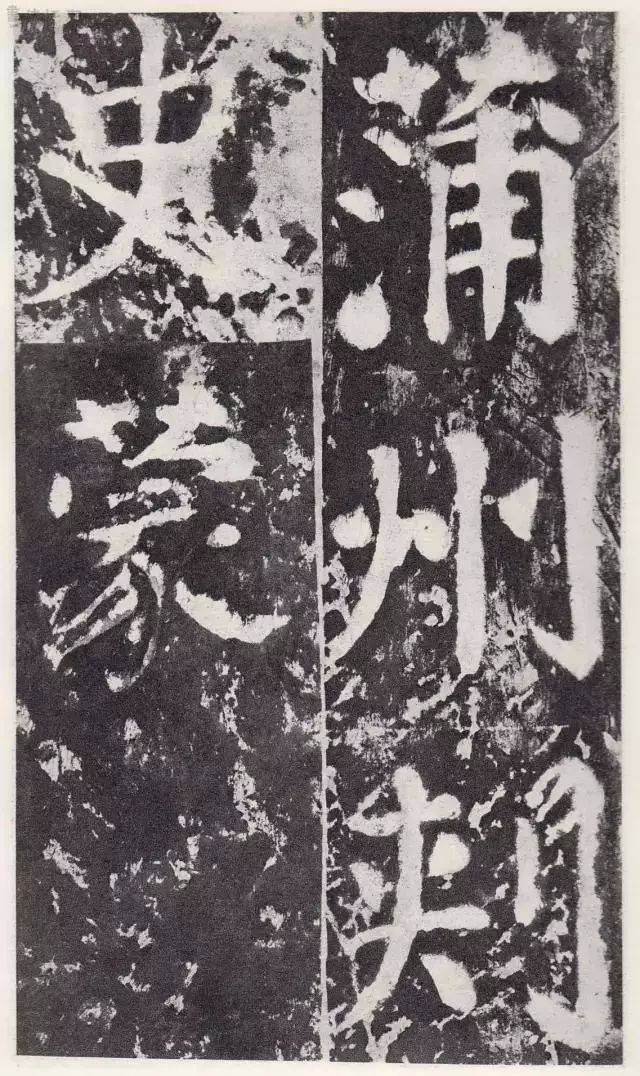 蒲州刺
史蒙